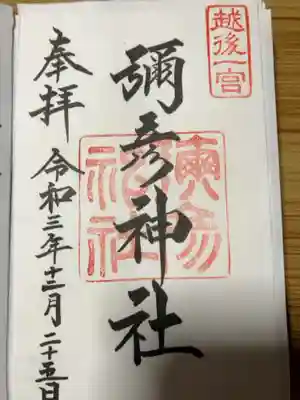 越後一宮
彌彦神社
彌彦神社
奉拝
令和三年十二月二十五日